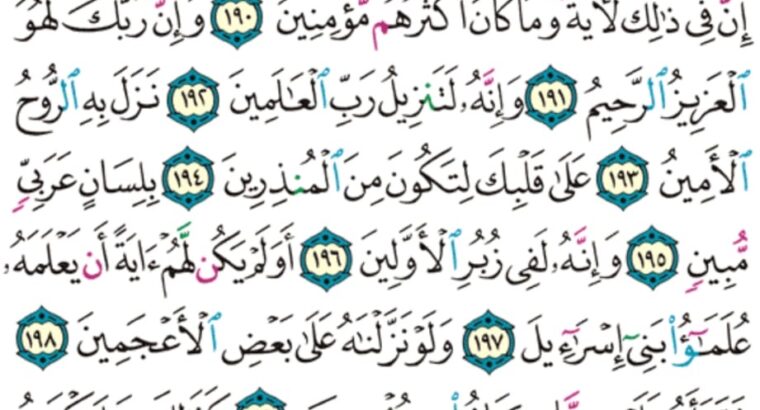 إِنَّ فِي ذَٰلِكَ لَآيَةً وَمَا كَانَ أَكْثَرُهُم مُّؤْمِنِينَ ١٩٠ وَإِنَّ رَبَّكَ لَهُوَ
ٱلْعَزِيزُ ٱلرَّحِيمُ ١٩١ وَإِنَّهُۥ لَتَنزِيلُ رَبِّ ٱلْعَـٰلَمِينَ ١٩٢ نَزَلَ بِهِ ٱلرُّوحُ
ٱلْأَمِينُ ١٩٣ عَلَىٰ قَلْبِكَ لِتَكُونَ مِنَ ٱلْمُنذِرِينَ ١٩٤ بِلِسَانٍ عَرَبِيٍّ
مُّبِينٍ ١٩٥ وَإِنَّهُۥ لَفِي زُبُرِ ٱلْأَوَّلِينَ ١٩٦ أَوَلَمْ يَكُن لَّهُمْ ءَايَةً أَن يَعْلَمَهُۥ
عُلَمَـٰٓؤُا۟ بَنِىٓ إِسْرَٰٓءِيلَ ١٩٧ وَلَوْ نَزَّلْنَـٰهُ عَلَىٰ بَعْضِ ٱلْأَعْجَمِينَ ١٩٨